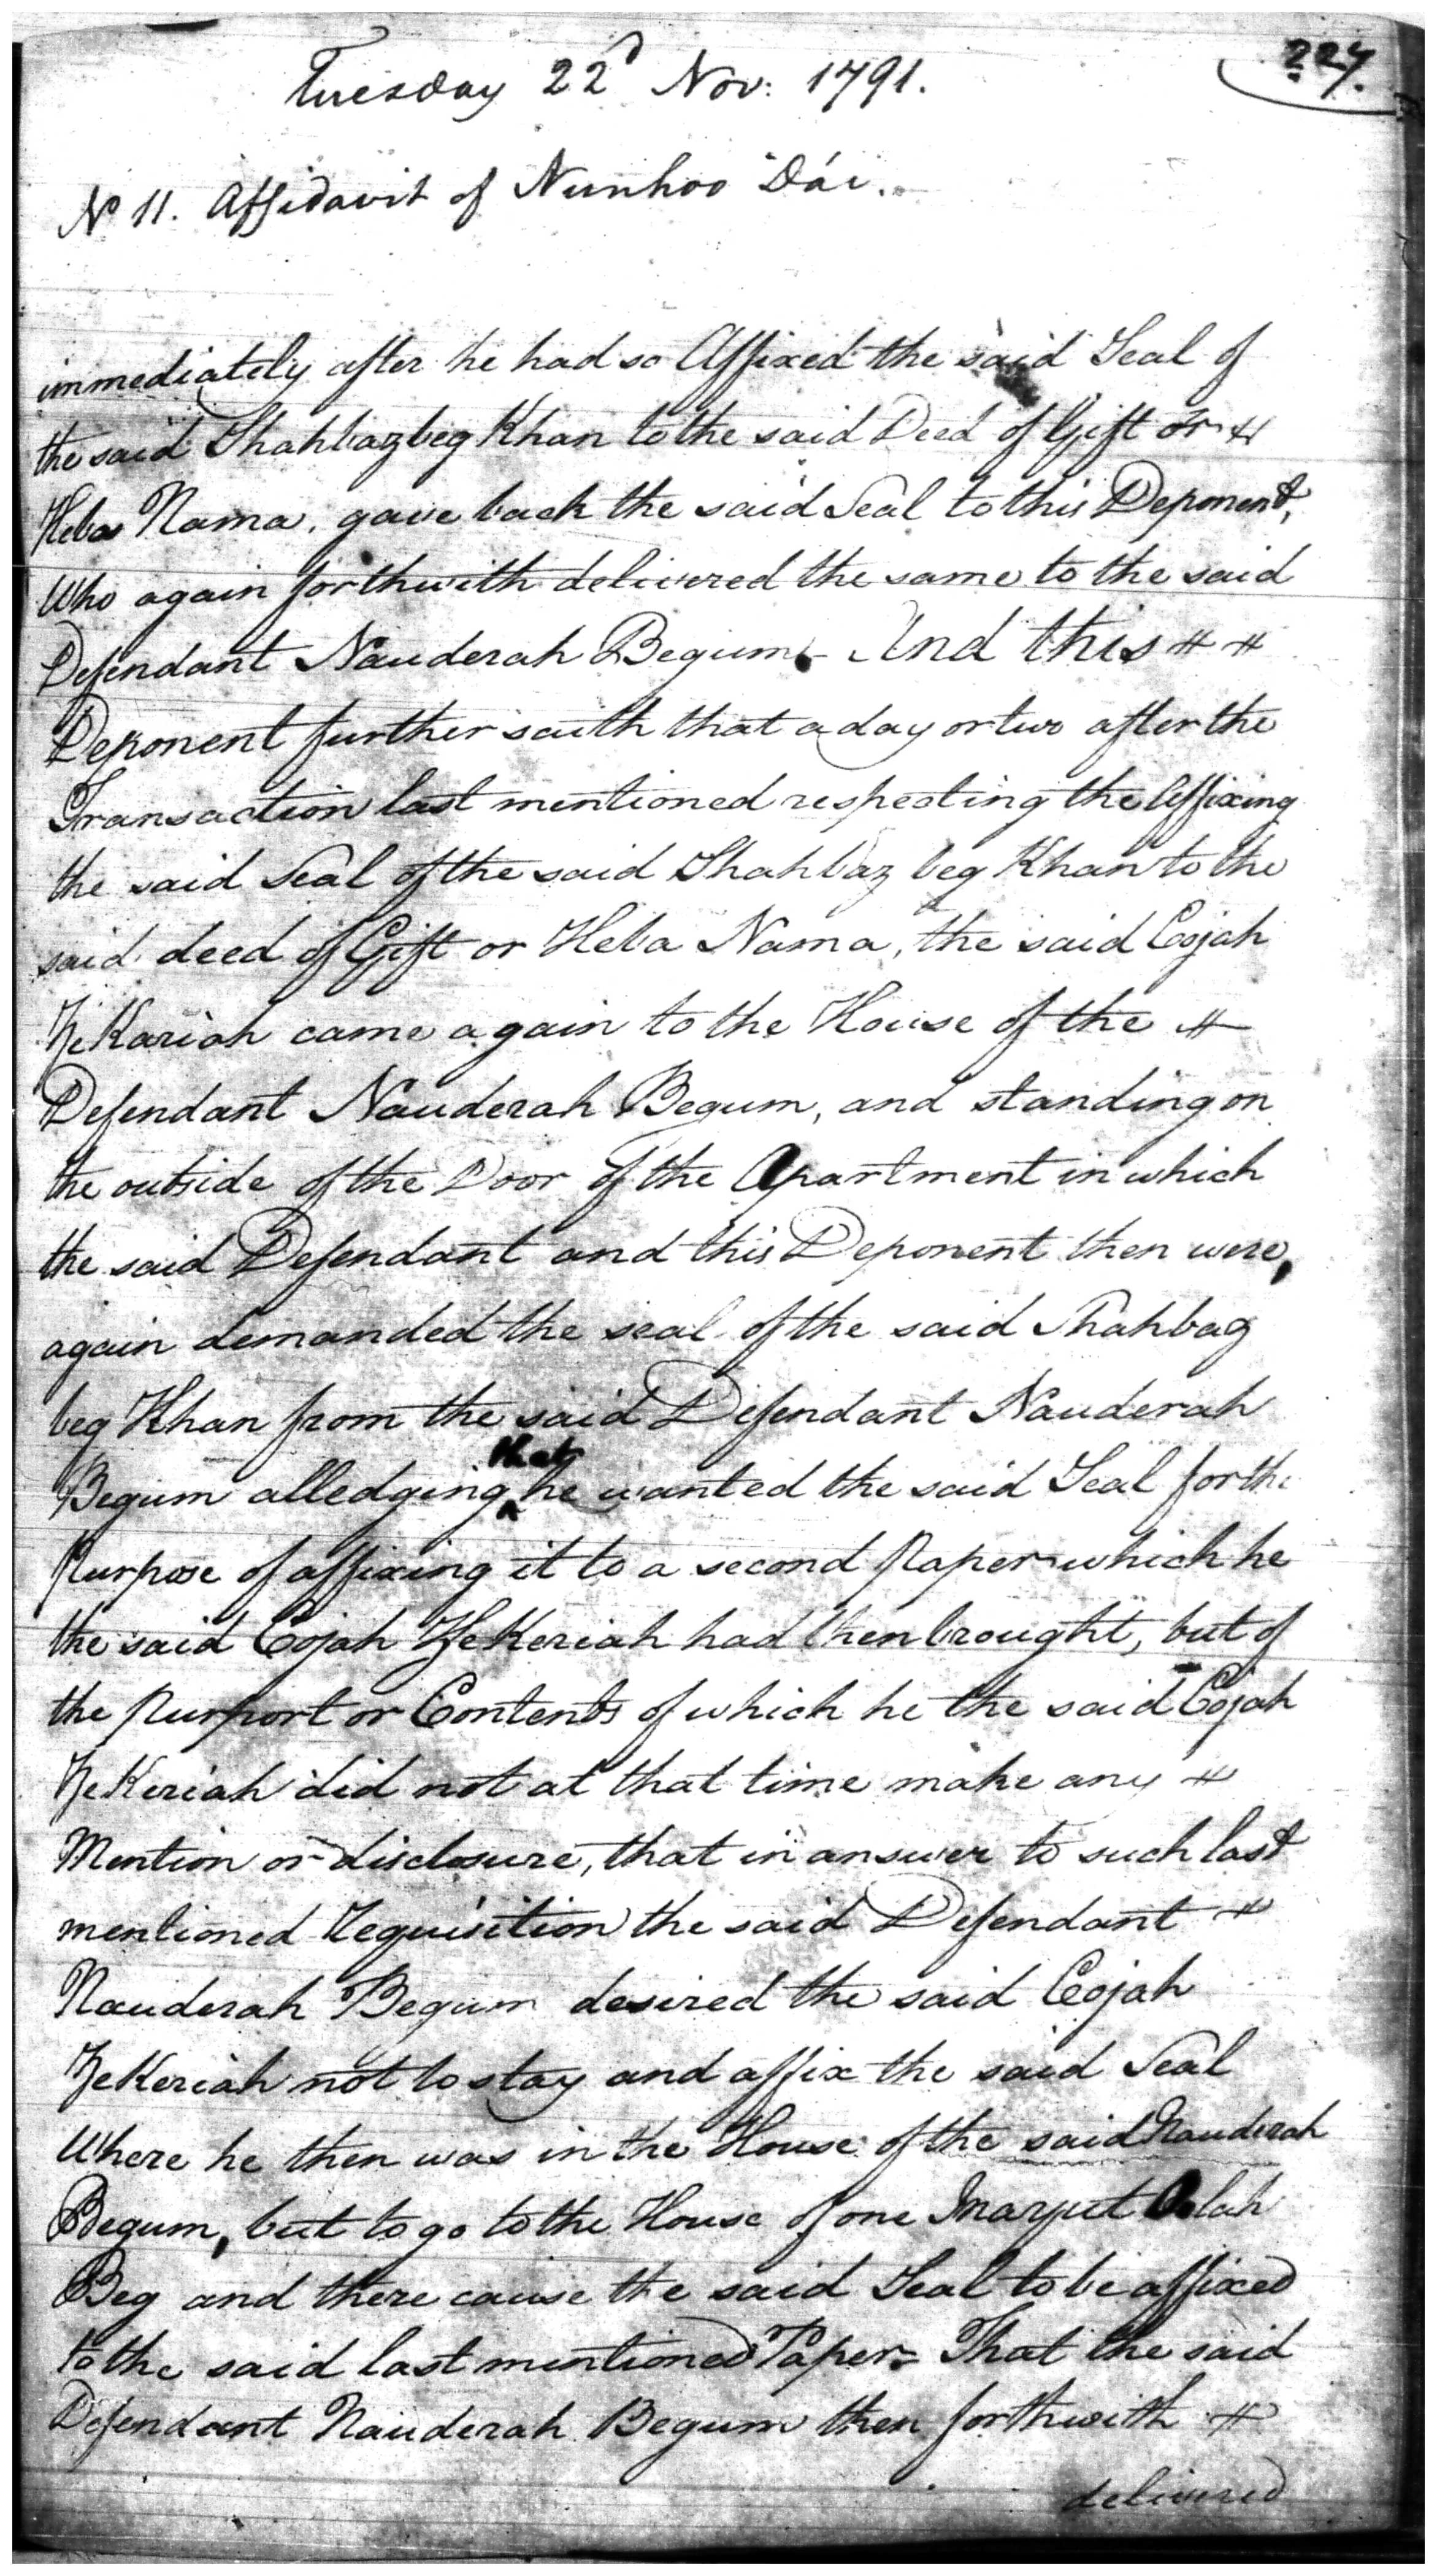 227.
Tuesday 22d Nov: 1791.
No 11. Affidavit of Nunhoo Dái.
immediately after he had so Affixed the said Seal of
the said Shahbazbeg Khan to the said Deed of Gift or
Heba Nama, gave back the said Seal to this Deponent,
Who again forthwith delivered the same to the said
Defendant Nauderah Begum. And this
Deponent further saith that a day or two after the
Transaction last mentioned respecting the Affixing
the said Seal of the said Shahbaz beg Khan to the
said deed of Gift or Heba Nama, the said Cojah
ZeKariah came again to the House of the
Defendant Nauderah Begum, and standing on
the outside of the Door of the Apartment in which
the said Defendant and this Deponent then were,
again demanded the seal of the said Shahbaz
beg Khan from the said Defendant Nauderah
Begum alledging that he wanted the said Seal for the
Purpose of affixing it to a second Paper which he
the said Cojah ZeKeriah had then brought, but of
the Purport or Contents of which he the said Cojah
ZeKeriah did not at that time make any
Mention or disclosure, that in answer to such last
mentioned Requisition the said Defendant
Nauderah Begum desired the said Cojah
ZeKeriah not to stay and affix the said Seal
Where he then was in the House of the said Nauderah
Begum, but to go to the House of one
Beg and there cause the said Seal to be affixed
to the said last mentioned Paper= That the said
Defendant Nauderah Begum then forthwith
delivered